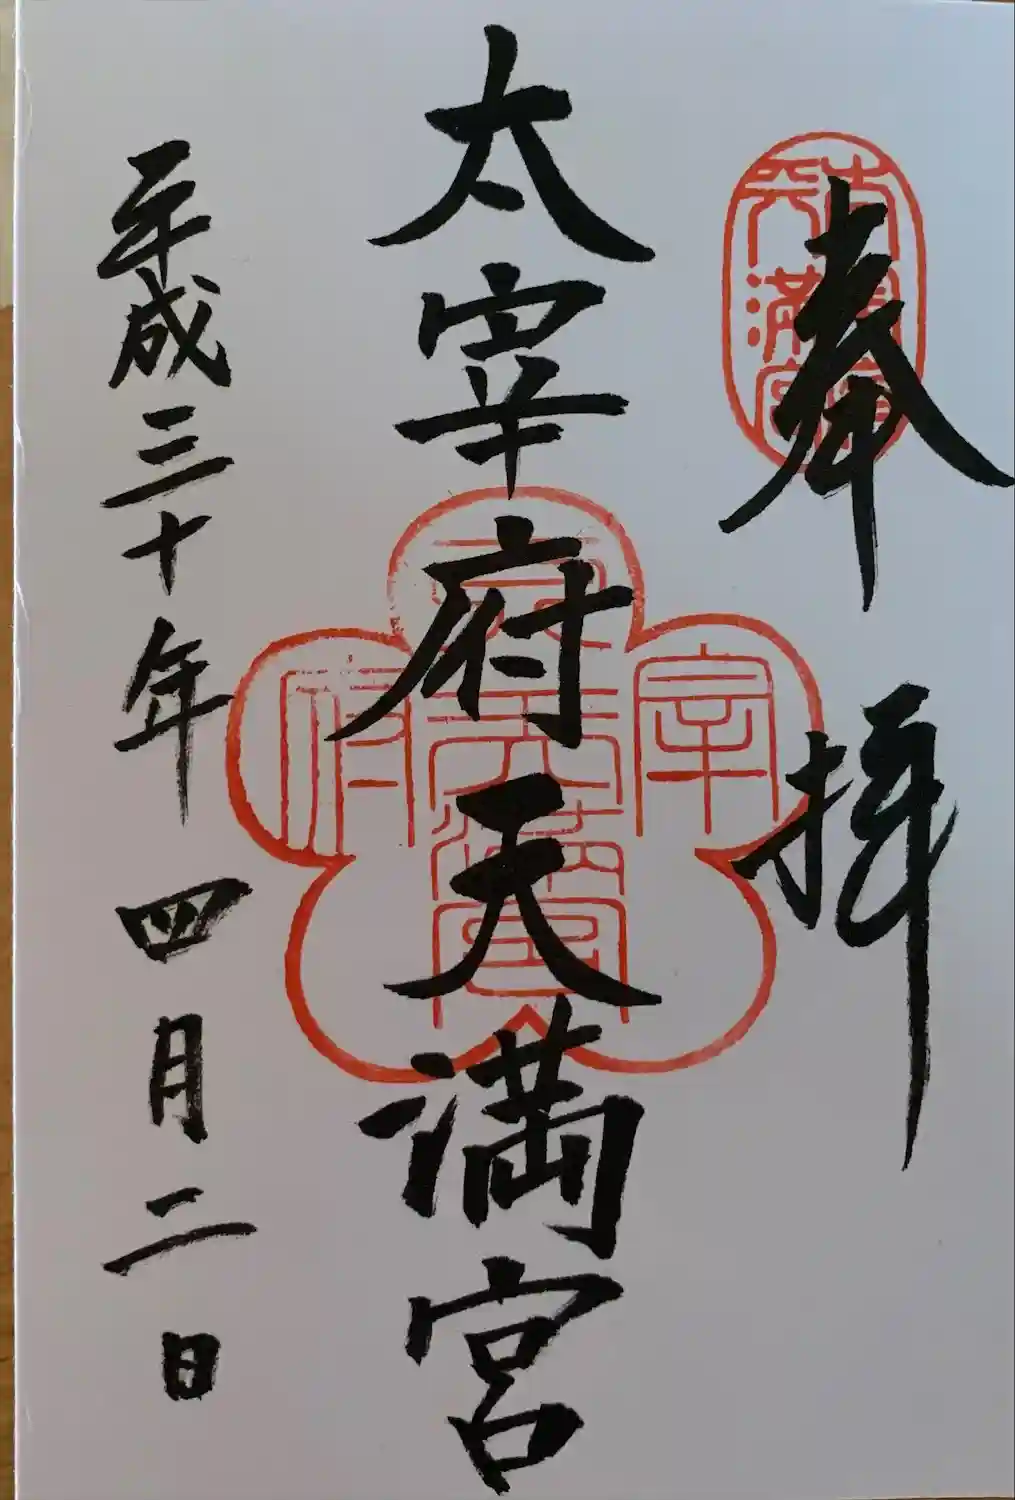 奉拝
太宰府天満宮
平成三十年四月二日